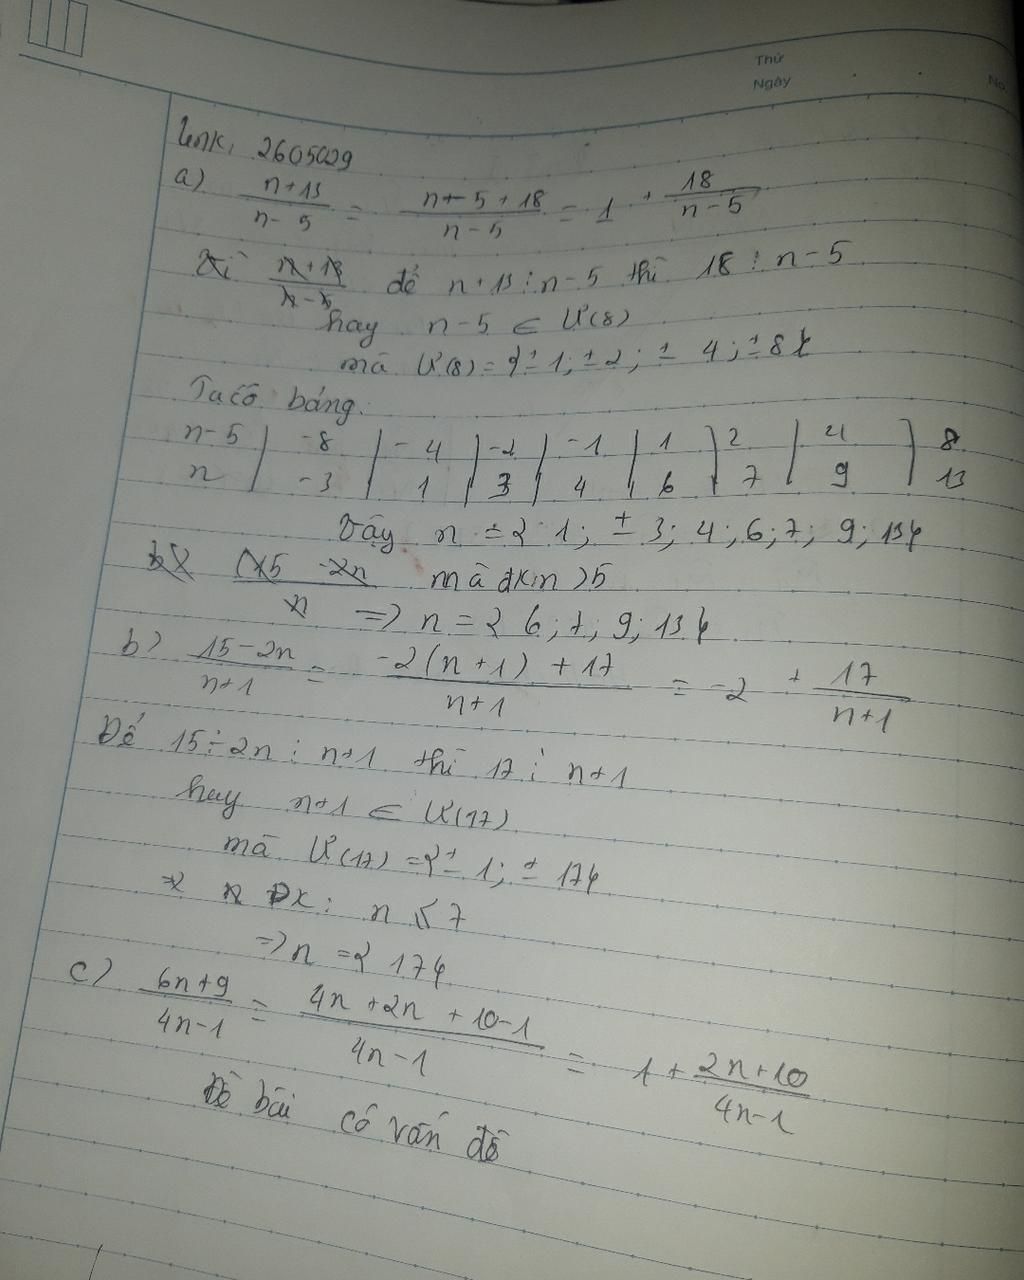 Thứ
Ngày
No
link, 2605029
a) n+13/n-5 = n-5+18/n-5 = 1 + 18/n-5
Vì n+18/n-5 để n+13 ⋮ n-5 thì 18 ⋮ n-5
hay n-5 ∈ Ư(8)
mà Ư(8) = {±1; ±2; ±4; ±8}
Ta có bảng.
n-5 | -8 | -4 | -2 | -1 | 1 | 2 | 4 | 8
n | -3 | 1 | 3 | 4 | 6 | 7 | 9 | 13
Vậy n = {1; ±3; 4; 6; 7; 9; 13}
b) 15-2n/n mà đk n>5
=> n = {6; 7; 9; 13}
b) 15-2n/n+1 = -2(n+1)+17/n+1 = -2 + 17/n+1
Để 15-2n ⋮ n+1 thì 17 ⋮ n+1
hay n+1 ∈ Ư(17)
mà Ư(17) = {±1; ±17}
=> n ĐK: n ≤ 7
=> n = {17}
c) 6n+9/4n-1 = 4n+2n+10-1/4n-1 = 1 + 2n+10/4n-1
Đề bài có vấn đề